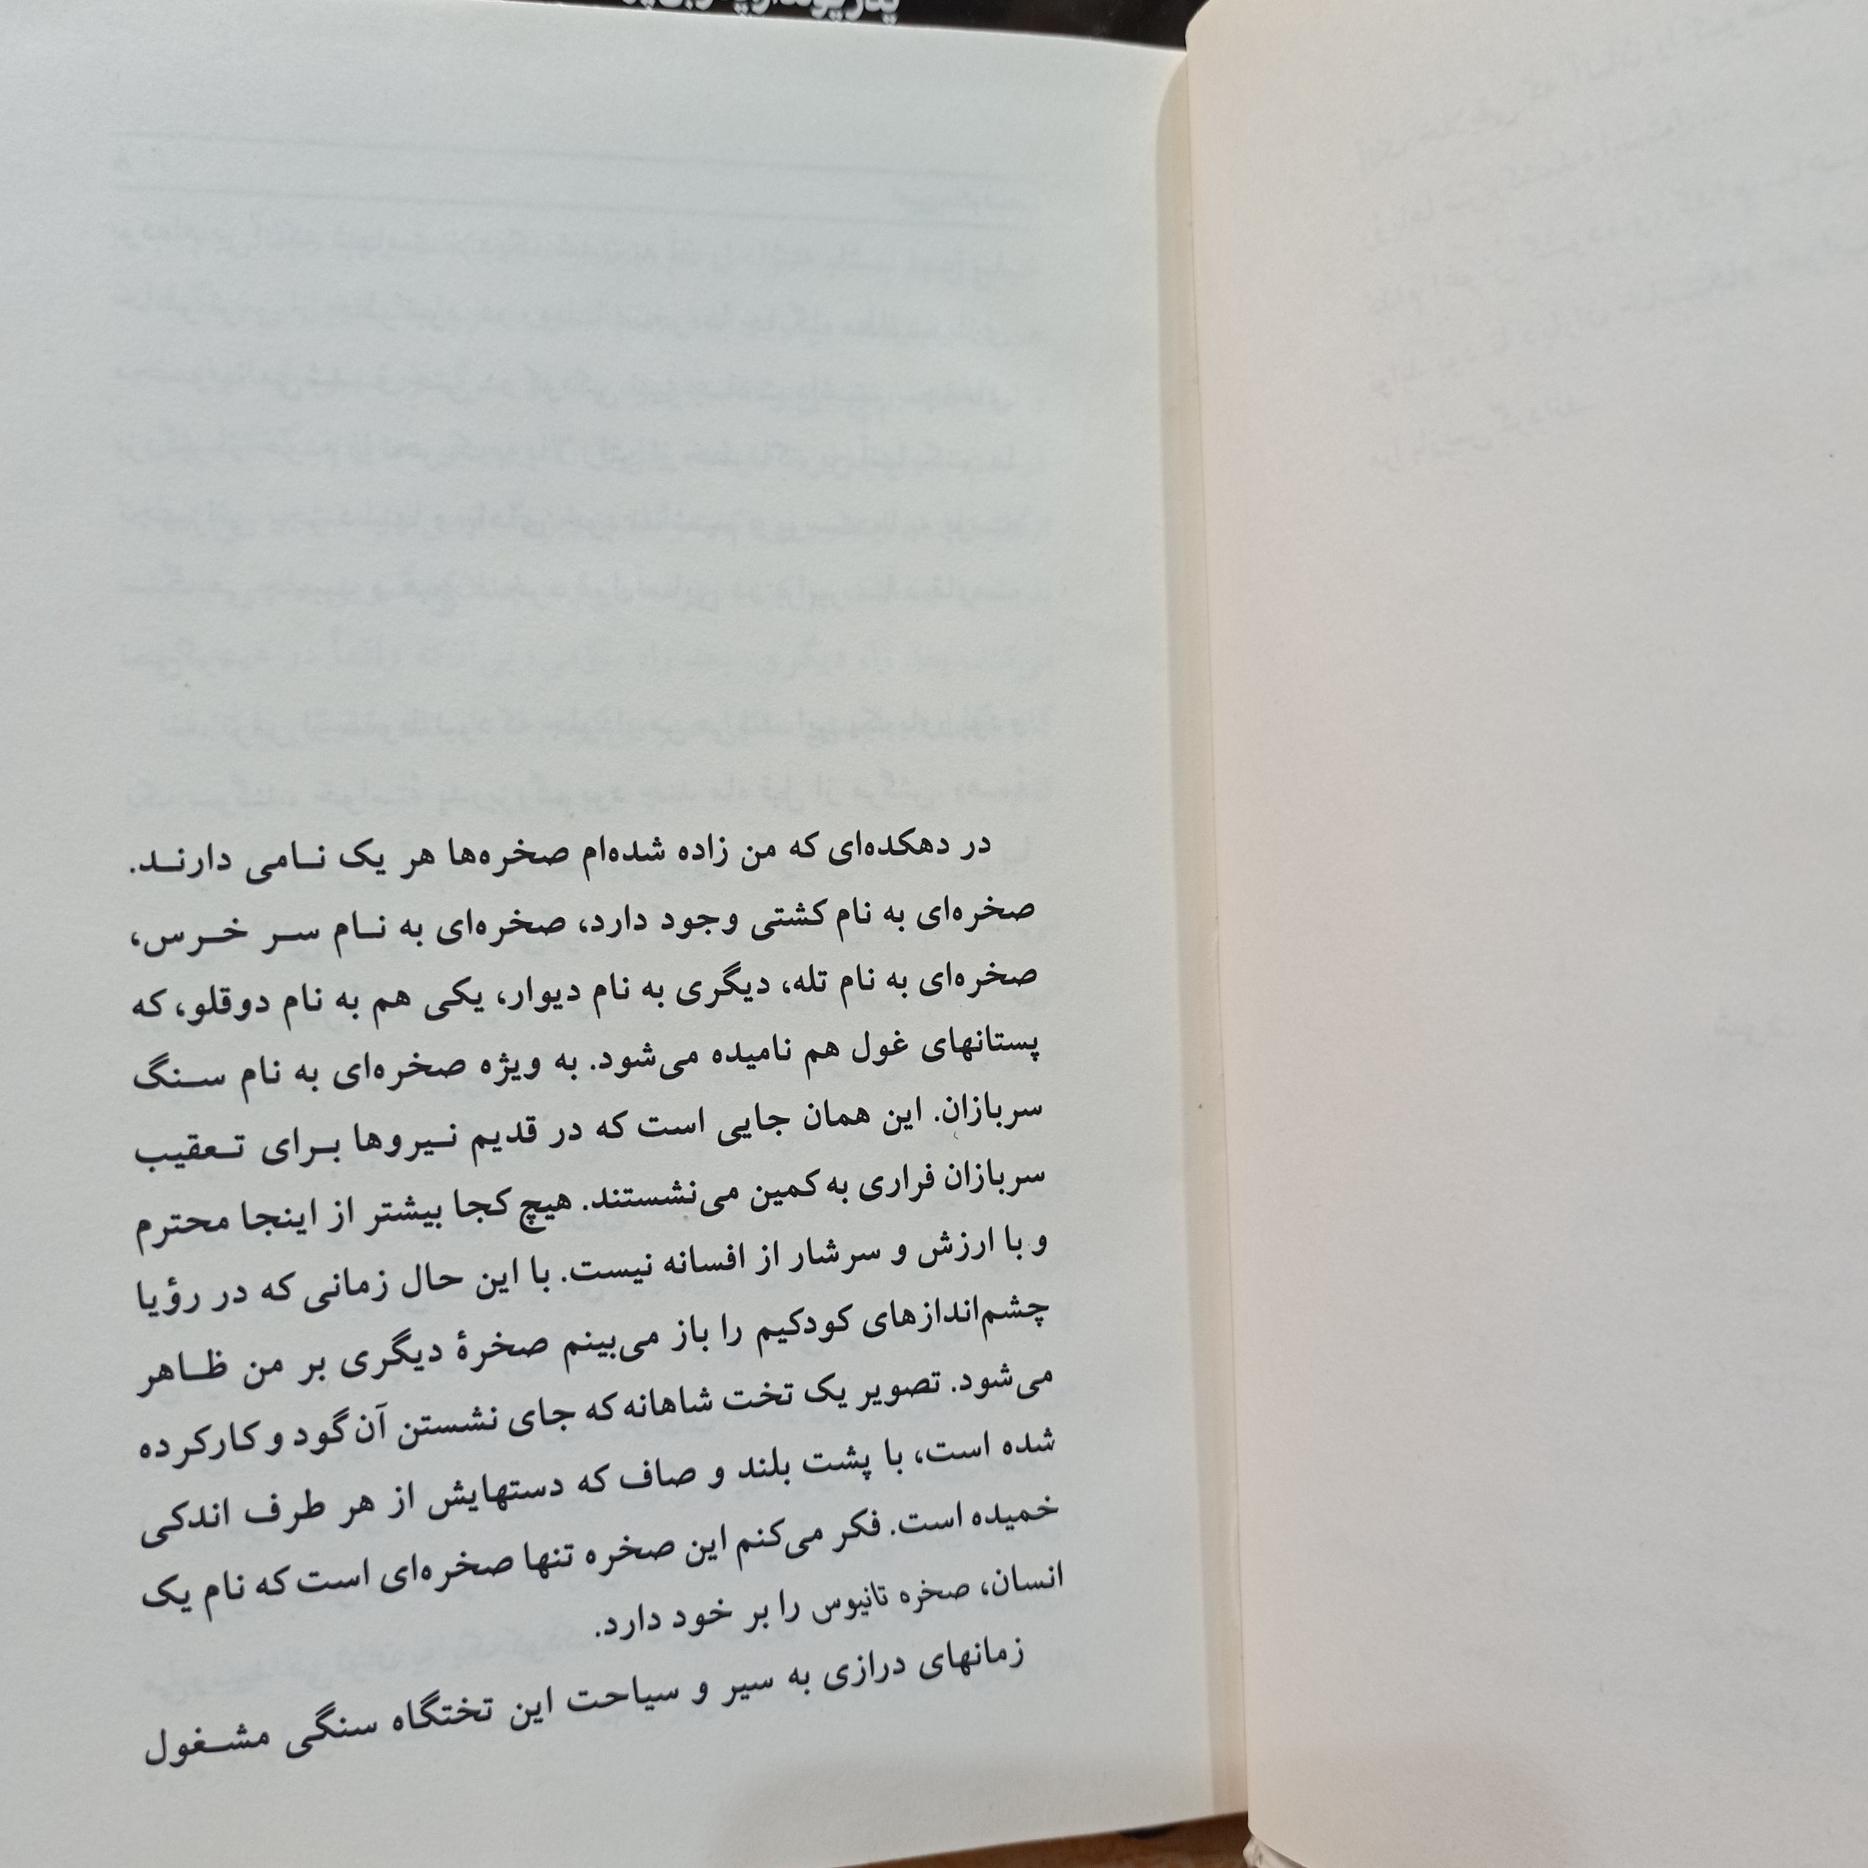 در دهکده‌ای که من زاده شده‌ام صخره‌ها هر یک نـامی دارنـد.
صخره‌ای به نام کشتی وجود دارد، صخره‌ای به نـام سـر خـرس،
صخره‌ای به نام تله، دیگری به نام دیوار، یکی هم به نام دوقلو، که
پستانهای غول هم نامیده می‌شود. به ویژه صخره‌ای به نام سـنگ
سربازان. این همان جایی است که در قدیم نـیروها بـرای تـعقیب
سربازان فراری به کمین می‌نشستند. هیچ کجا بیشتر از اینجا محترم
و با ارزش و سرشار از افسانه نیست. با این حال زمانی که در رؤیا
چشم‌اندازهای کودکیم را باز می‌بینم صخرۀ دیگری بر من ظـاهر
می‌شود. تصویر یک تخت شاهانه که جای نشستن آن گود و کارکرده
شده است، با پشت بلند و صاف که دستهایش از هر طرف اندکی
خمیده است. فکر می‌کنم این صخره تنها صخره‌ای است که نام یک
انسان، صخره تانیوس را بر خود دارد.
زمانهای درازی به سیر و سیاحت این تختگاه سنگی مشـغول